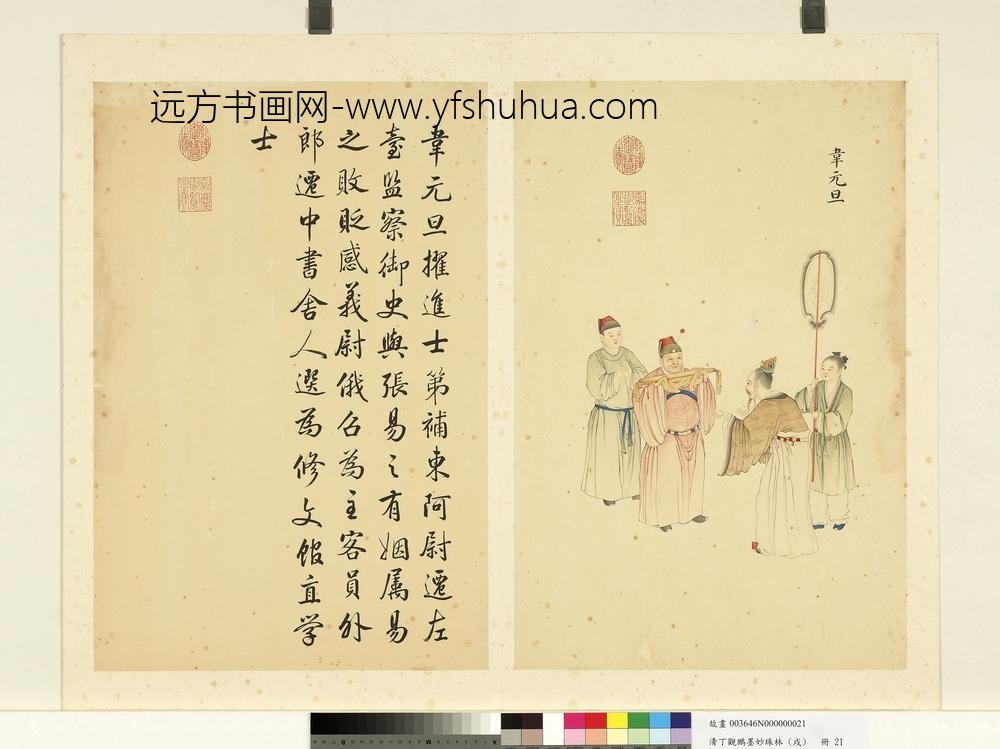 远方书画网-www.yfshuhua.com
韋元旦
韋元旦擢進士第補東阿尉遷左
臺監察御史與張易之有姻属易
之敗貶感義尉俄召為主客員外
郎遷中書舍人選為修文館直学
士
故畫 003646N000000021
清丁觀鵬墨妙珠林（戌） 冊 21